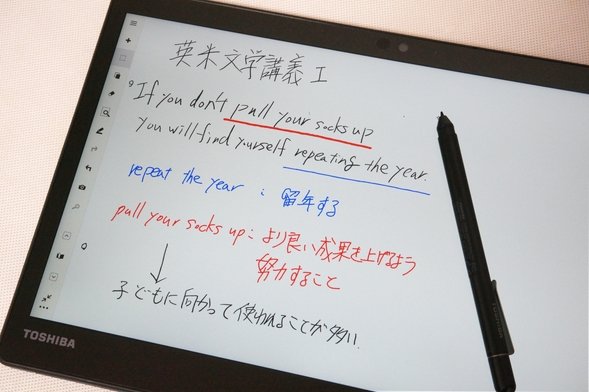 英米文学講義 I
9 If you don't pull your socks up
you will find yourself repeating the year.
repeat the year : 留年する
pull your socks up : より良い成果を上げるよう
努力すること
↓
子どもに向かって使われることが多い.
TOSHIBA